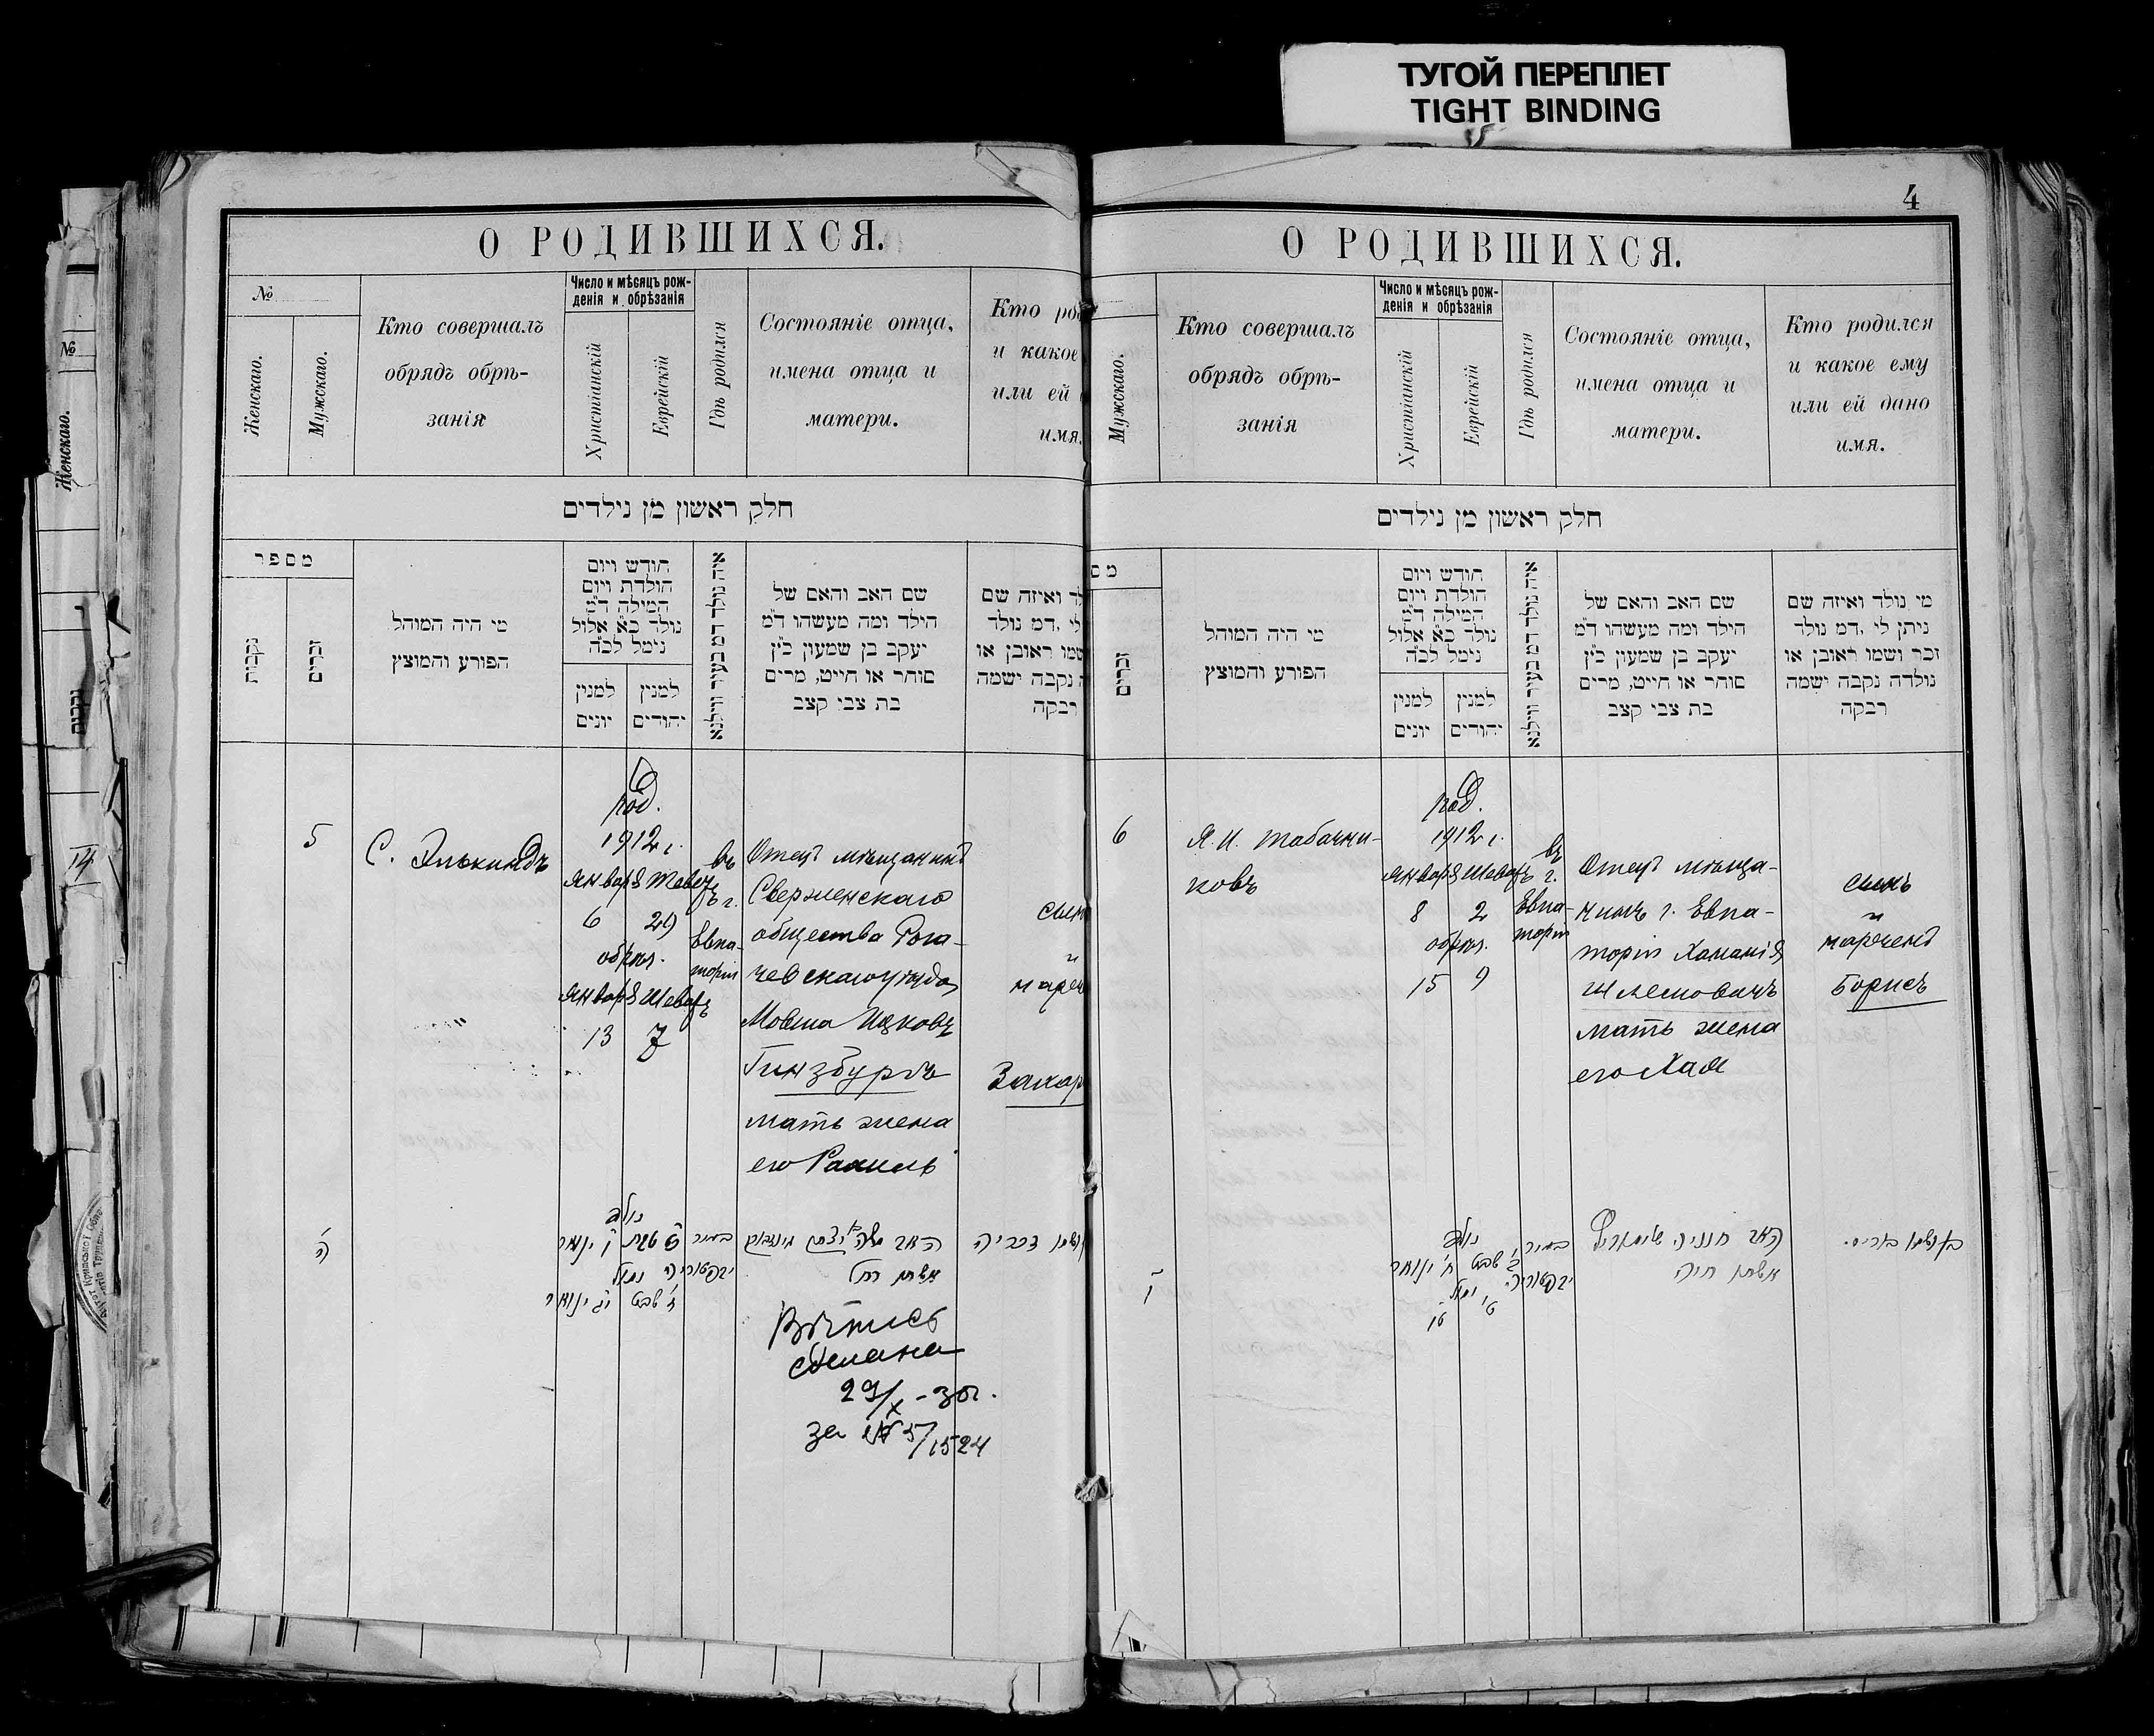 ТУГОЙ ПЕРЕПЛЕТ
TIGHT BINDING
О РОДИВШИХСЯ.
№
Женскаго.
Мужскаго.
Кто совершалъ
обрядъ обрѣ-
занія
Число и мѣсяцъ рож-
денія и обрѣзанія
Христіанскій
Еврейскій
Гдѣ родился
Состояніе отца,
имена отца и
матери.
Кто род
и какое
или ей
имя.
חלק ראשון מן נילדים
מספר
נקבות
זכרים
מי היה המוהל
הפורע והמוצץ
חודש ויום
הולדת ויום
המילה ד״מ
נולד כ״א אלול
נימל לכ״ה
למנין
יונים
למנין
יהודים
איה נולד דמ בעיר ווילנא
שם האב והאם של
הילד ומה מעשהו ד״מ
יעקב בן שמעון כ״ץ
סוחר או חייט, מרים
בת צבי קצב
לד ואיזה שם
לי .דמ נולד
שמו ראובן או
נקבה ישמה
רבקה
5
С. Элькиндъ
род.
1912 г.
Января Тевефъ
6 29
обрѣз.
Января Шевафъ
13 7
въ
г.
Евпа-
торіи
Отецъ мѣщанинъ
Сверженскаго
общества Рога-
чевскаго уѣзда
Мовша Ицковъ
Гинзбургъ
мать жена
его Рахиль
сын
и
нареч
Захар
ה׳
נולד
כ״ט טבת ו׳ ינואר
נימול
ז׳ שבט י״ג ינואר
בעיר
יבפטוריה
האב משה יצחק גינזבורג
אשתו רחל
ושמו זכריה
Выпись
сдѣлана
29/X - 30 г.
за № 5/1524
4
О РОДИВШИХСЯ.
Мужскаго.
Кто совершалъ
обрядъ обрѣ-
занія
Число и мѣсяцъ рож-
денія и обрѣзанія
Христіанскій
Еврейскій
Гдѣ родился
Состояніе отца,
имена отца и
матери.
Кто родился
и какое ему
или ей дано
имя.
חלק ראשון מן נילדים
מס
זכרים
מי היה המוהל
הפורע והמוצץ
חודש ויום
הולדת ויום
המילה ד״מ
נולד כ״א אלול
נימל לכ״ה
למנין
יונים
למנין
יהודים
איה נולד דמ בעיר ווילנא
שם האב והאם של
הילד ומה מעשהו ד״מ
יעקב בן שמעון כ״ץ
סוחר או חייט, מרים
בת צבי קצב
מי נולד ואיזה שם
ניתן לי .דמ נולד
זכר ושמו ראובן או
נולדה נקבה ישמה
רבקה
6
Я. И. Табачни-
ковъ
род.
1912 г.
Января Шевафъ
8 2
обрѣз.
15 9
въ
г.
Евпа-
торіи
Отецъ мѣща-
нинъ г. Евпа-
торіи Хананія
Шлемовичъ
мать жена
его Хая
сынъ
и
нареченъ
Борисъ
ו׳
נולד
ב׳ שבט ח׳ ינואר
נימול
ט׳
15
בעיר
יבפטוריה
האב חנניה
אשתו חיה
בן ושמו בוריס.